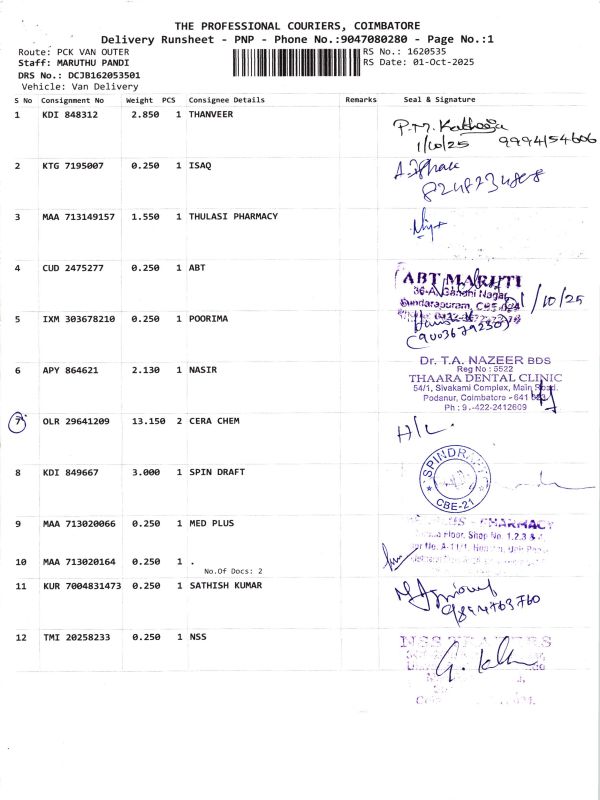 THE PROFESSIONAL COURIERS, COIMBATORE
Delivery Runsheet - PNP - Phone No.:9047080280 - Page No.:1
Route: PCK VAN OUTER RS No.: 1620535
Staff: MARUTHU PANDI RS Date: 01-Oct-2025
DRS No.: DCJB162053501
Vehicle: Van Delivery
S No Consignment No Weight PCS Consignee Details Remarks Seal & Signature
1 KDI 848312 2.850 1 THANVEER
P.M. Kathooja
1/10/25 9994154606
2 KTG 7195007 0.250 1 ISAQ
3 MAA 713149157 1.550 1 THULASI PHARMACY
4 CUD 2475277 0.250 1 ABT
ABT MARUTI
36-A, Gandhi Nagar
Sundarapuram, CBE-024
1/10/25
5 IXM 303678210 0.250 1 POORIMA
6 APY 864621 2.130 1 NASIR
Dr. T.A. NAZEER BDS
Reg No : 5522
THAARA DENTAL CLINIC
54/1, Sivakami Complex, Main Road,
Podanur, Coimbatore - 641 023
Ph : 9.-422-2412609
7 OLR 29641209 13.150 2 CERA CHEM
H/L
8 KDI 849667 3.000 1 SPIN DRAFT
SPINDRAFT
CBE-21
9 MAA 713020066 0.250 1 MED PLUS
PHARMACY
Floor, Shop No. 1,2,3 &
10 MAA 713020164 0.250 1 .
No.Of Docs: 2
11 KUR 7004831473 0.250 1 SATHISH KUMAR
9894763760
12 TMI 20258233 0.250 1 NSS
NSS TRADERS